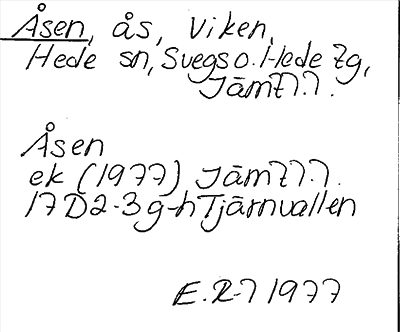 Åsen, ås, Viken,
Hede sn, Svegs o. Hede tg,
Jämtl.
Åsen
ek (1977) Jämtl.
17D2-3g-h Tjärnvallen
1977